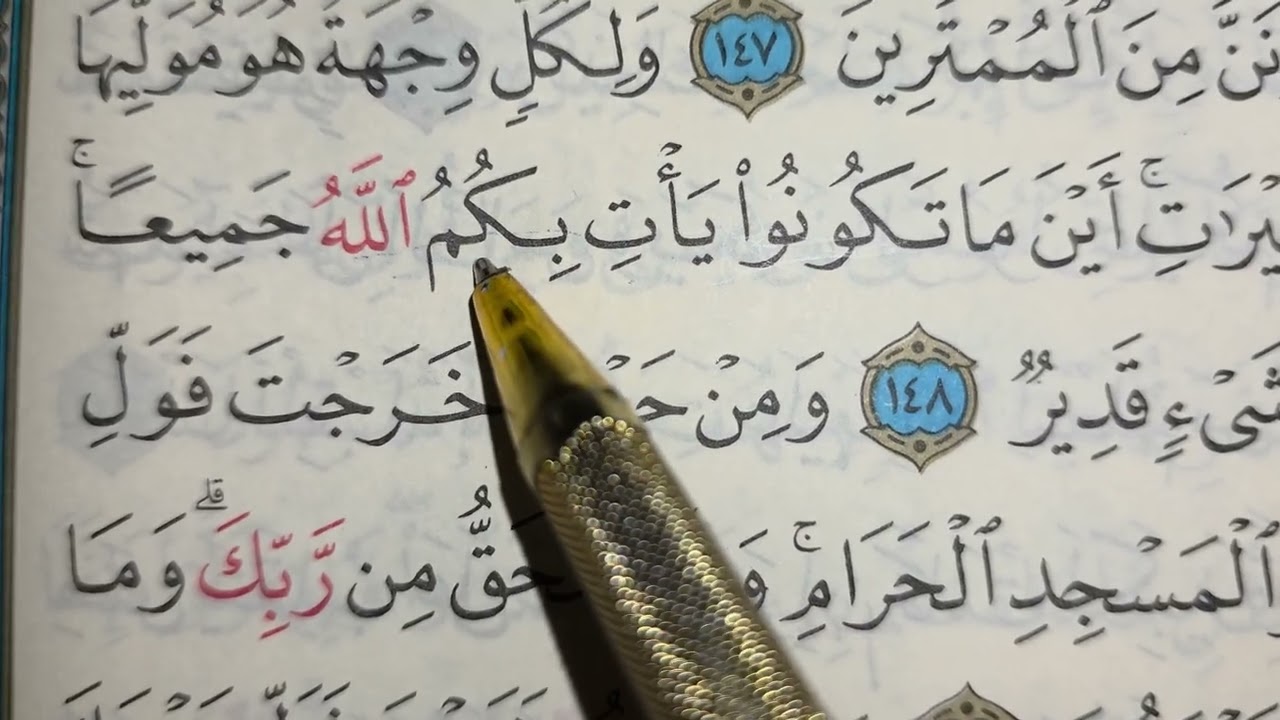 نَنَّ مِنَ ٱلْمُمْتَرِينَ ١٤٧ وَلِكُلٍّ وِجْهَةٌ هُوَ مُوَلِّيهَا
يْرَٰتِۚ أَيْنَ مَا تَكُونُوا۟ يَأْتِ بِكُمُ ٱللَّهُ جَمِيعًاۚ
شَىْءٍ قَدِيرٌ ١٤٨ وَمِنْ خَرَجْتَ فَوَلِّ
ٱلْمَسْجِدِ ٱلْحَرَامِۚ مِن رَّبِّكَۗ وَمَا